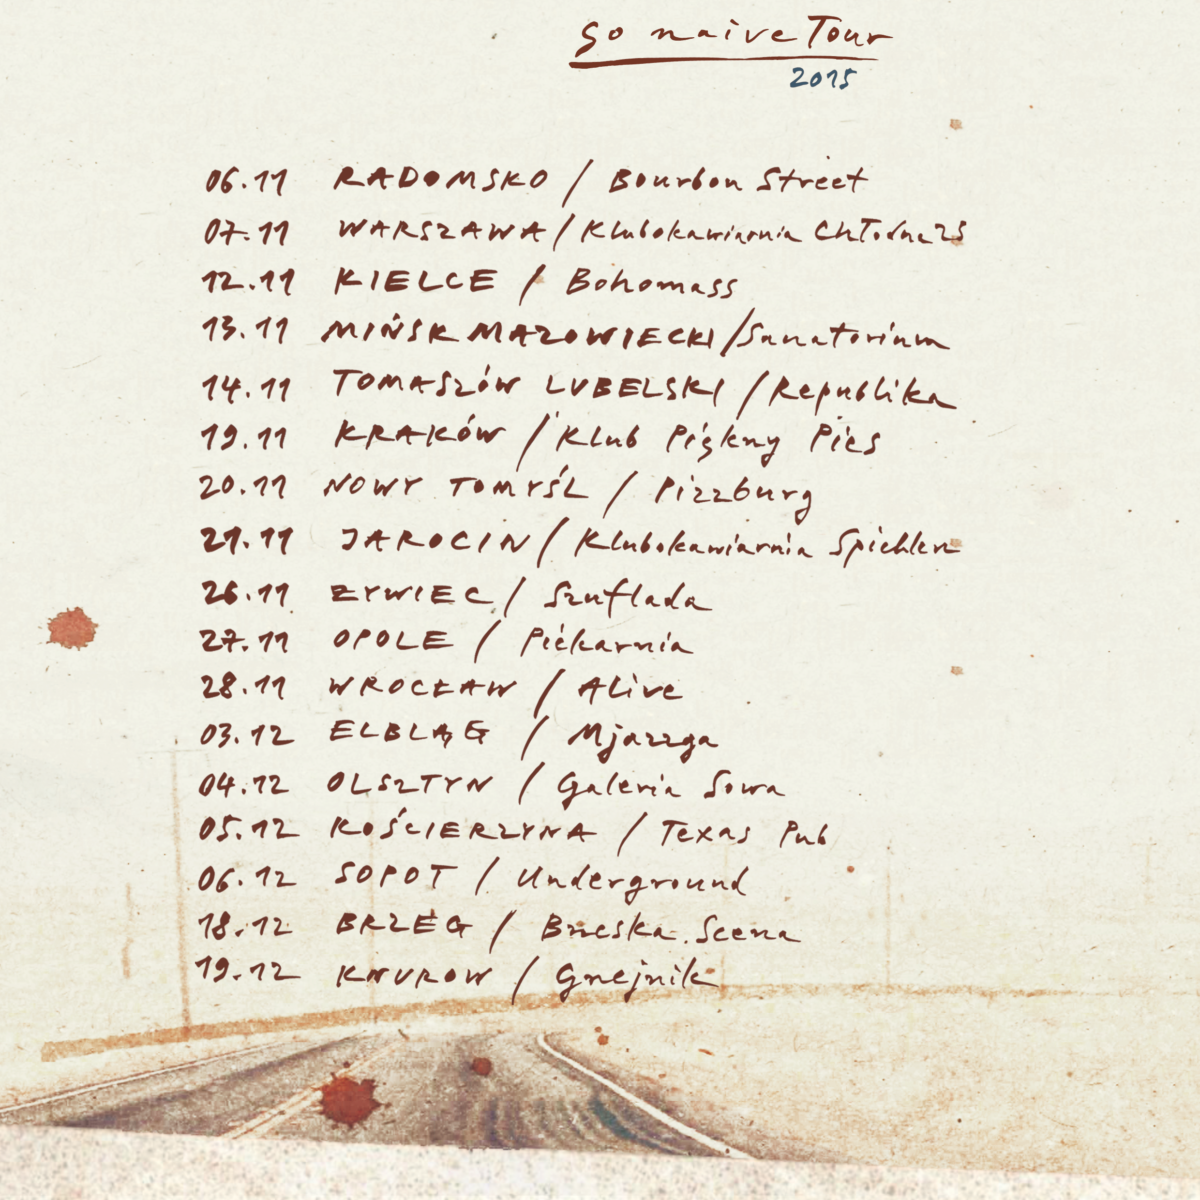 So naive Tour
2015
06.11 RADOMSKO / Bourbon Street
07.11 WARSZAWA / Klubokawiarnia Chłodna 25
12.11 KIELCE / Bohomass
13.11 MIŃSK MAZOWIECKI / Sanatorium
14.11 TOMASZÓW LUBELSKI / Republika
19.11 KRAKÓW / Klub Piękny Pies
20.11 NOWY TOMYŚL / Pizzburg
21.11 JAROCIN / Klubokawiarnia Spichlerz
26.11 ZYWIEC / Szuflada
27.11 OPOLE / Piekarnia
28.11 WROCŁAW / Alive
03.12 ELBLĄG / Mjazzga
04.12 OLSZTYN / Galeria Sowa
05.12 KOŚCIERZYNA / Texas Pub
06.12 SOPOT / Underground
18.12 BRZEG / Brzeska Scena
19.12 KNUROW / Gzejnik